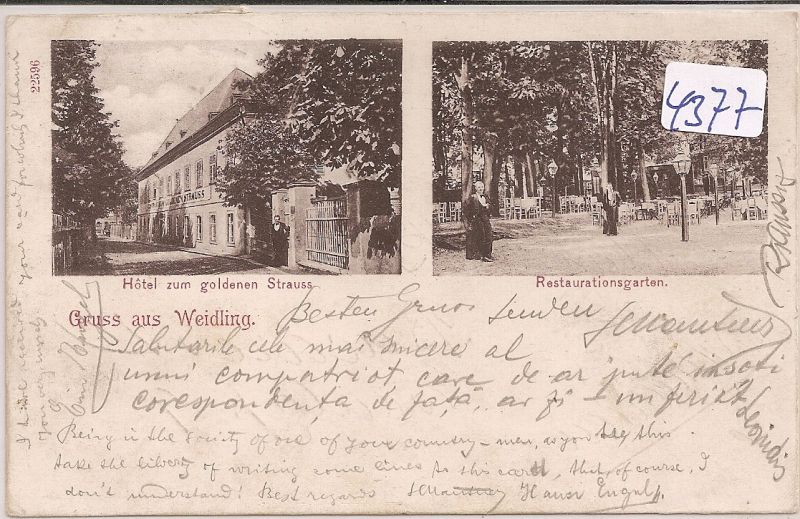 22596
4377
STRAUSS
Hôtel zum goldenen Strauss
Restaurationsgarten.
Gruss aus Weidling.
Besten Gruss senden
Salutările cele mai sincere al
unui compatriot care de ar puté însoti
corespondența de față, ar fi un fericit
Being in the society of one of your country-men, as you see this
take the liberty of writing some lines to this card, that, of course, I
don't understand! Best regards Hans Engel
I have received your card